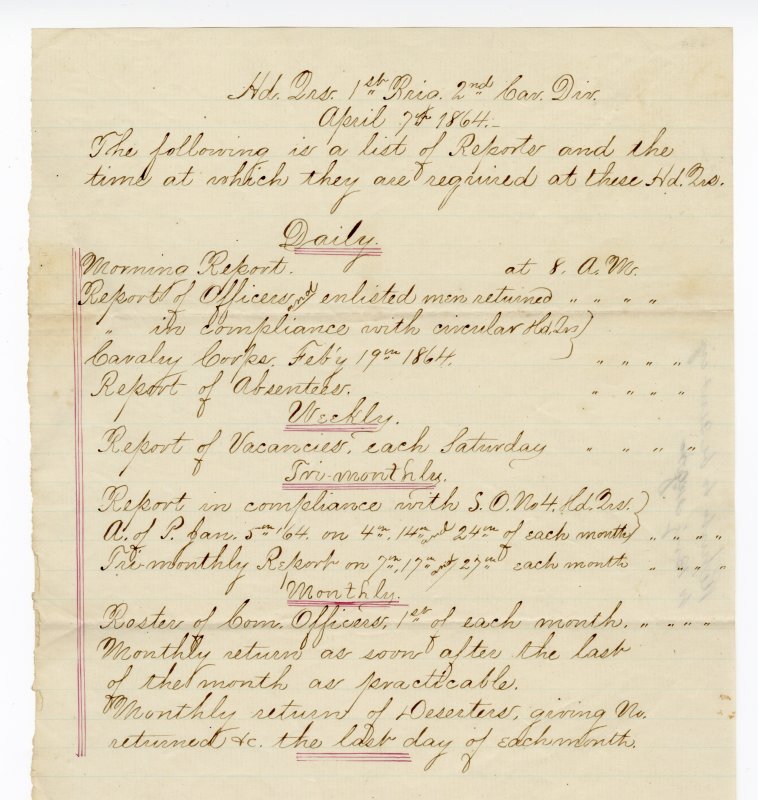 Hd. Qrs. 1st Brig. 2nd Cav. Div.
April 7th 1864.-
The following is a list of Reports and the
time at which they are required at these Hd. Qrs.
Daily.
Morning Report. at 8. A. M.
Reports of Officers and enlisted men returned " " " "
" in compliance with circular Hd. Qrs
Cavalry Corps. Feb'y 19th 1864. " " " "
Report of Absentees. " " " "
Weekly.
Report of Vacancies, each Saturday " " " "
Tri-monthly.
Report in compliance with S. O. No 4. Hd. Qrs.
A. of P. Jan. 5th '64. on 4th, 14th and 24th of each month " " " "
Tri-monthly Report on 7th, 17th and 27th each month " " " "
Monthly.
Roster of Com. Officers, 1st of each month. " " " "
Monthly return as soon after the last
of the month as practicable.
Monthly return of Deserters, giving No.
returned &c. the last day of each month.